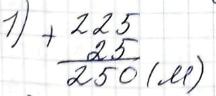 1) + 225
25
250 (м)